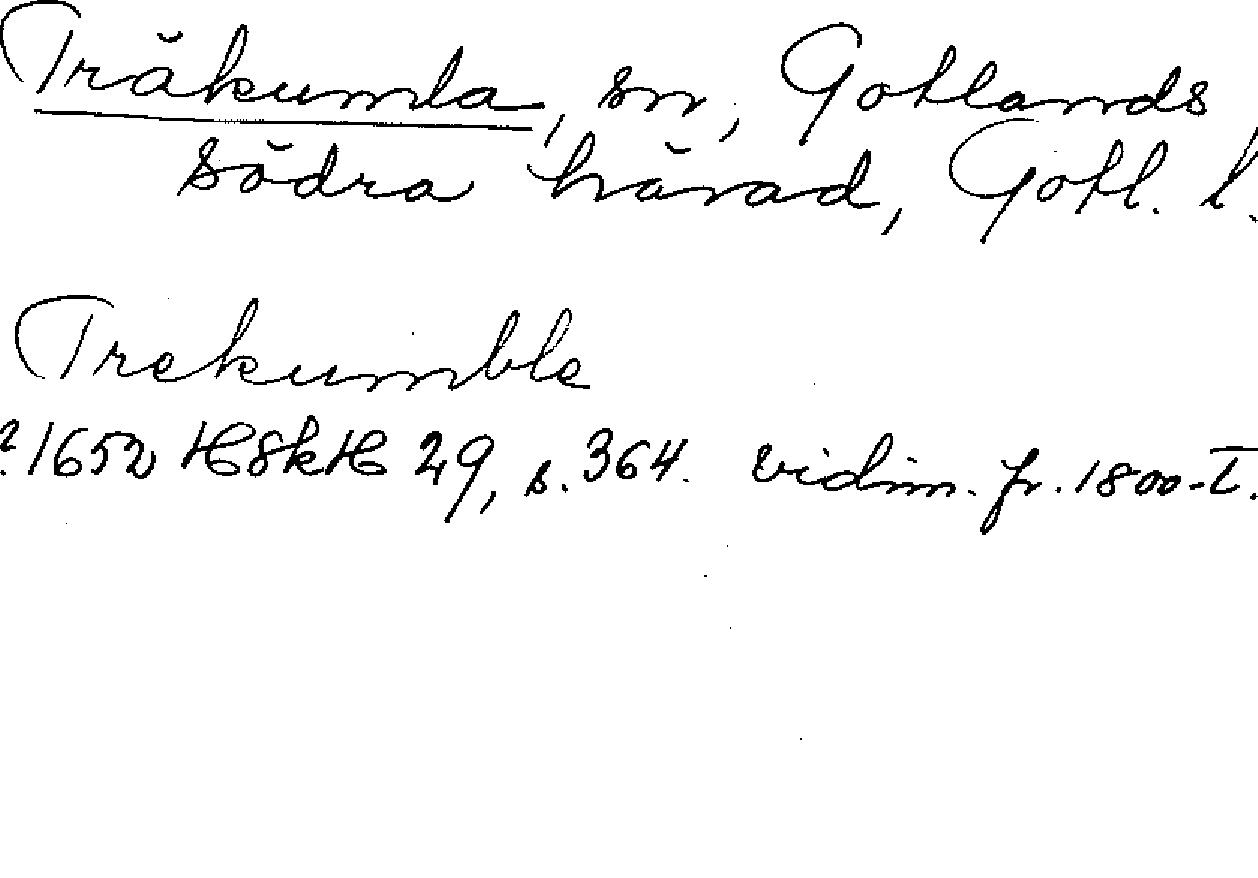 Träkumla, sn, Gotlands
södra härad, Gotl. l.
Trekumble
?. 1652 HSkH 29, s. 364. vidim. fr. 1800-t.